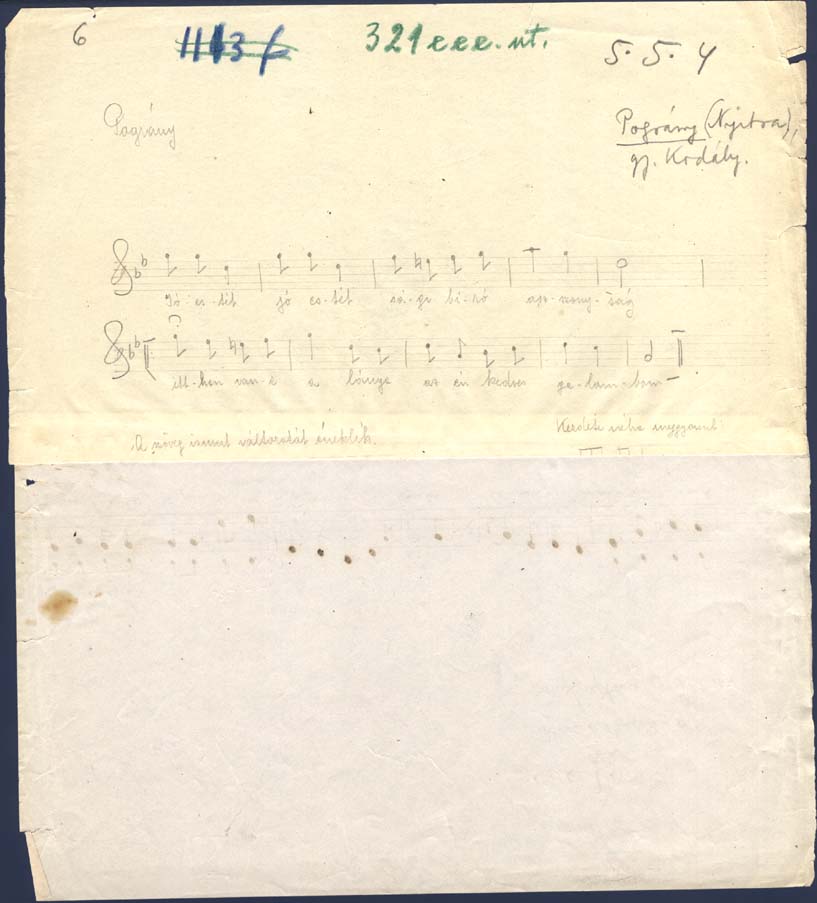 6
1113 f
321 eee. ut.
5. 5. 4
Pográny
Pográny (Nyitra),
gj. Kodály.
Jó es-tét jó es-tét bi-ró asz-szony-ság
itt-hon van-e a lánya az én kedves ga-lam-bom
A szöveg ismert változatát éneklik.
Kezdete néha